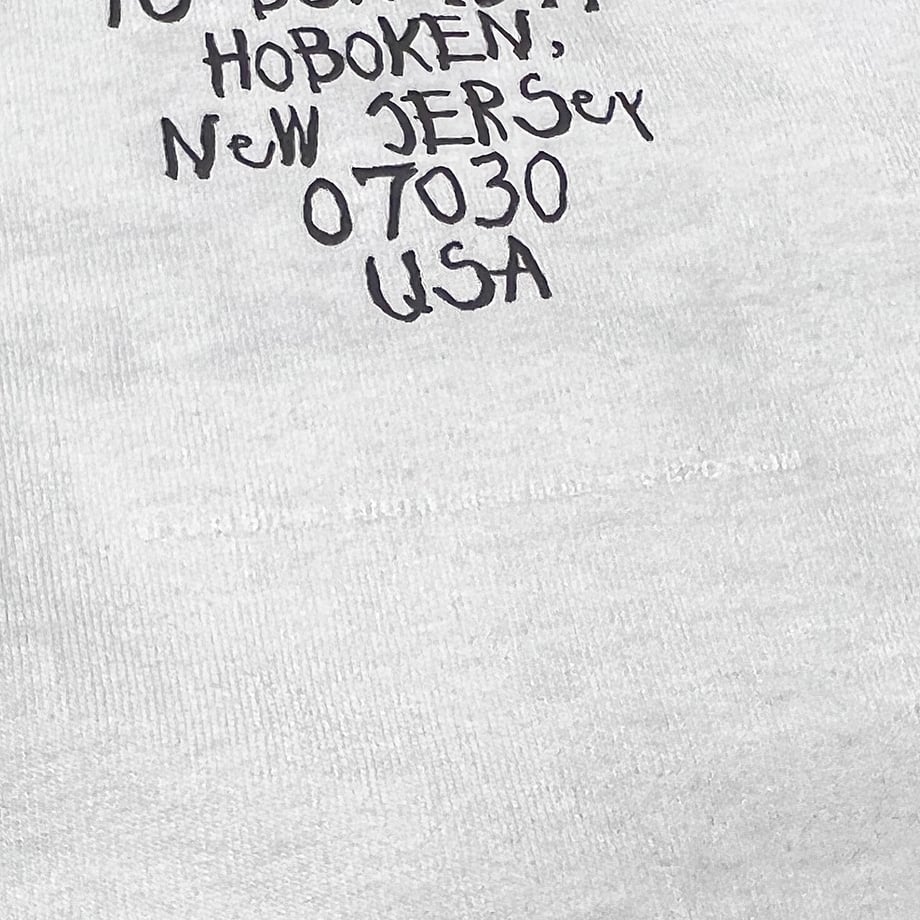 HOBOKEN,
NeW JERSey
07030
USA